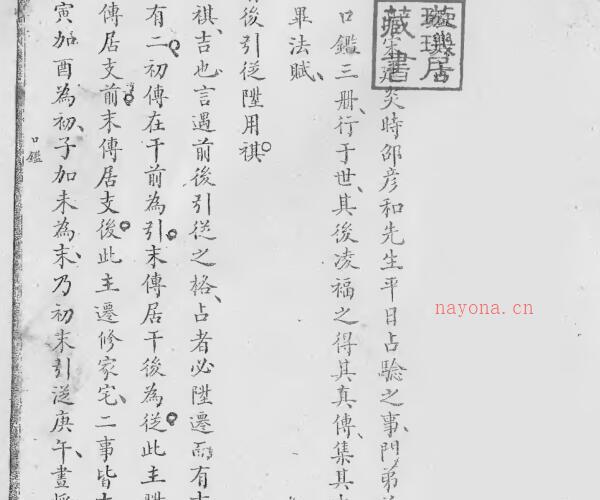 璇璣居
藏書
宋建炎時邵彦和先生平日占驗之事門弟
口鑑三册行于世其後凌福之得其真傳集其
畢法賦
前後引從陞用祺
祺吉也言遇前後引從之格占者必陞遷而有
有二初傳在干前為引末傳居干後為從此主陞
傳居支前末傳居支後此主遷修家宅二事皆
寅加酉為初子加未為末乃初末引從庚午晝
口鑑
nayona.cn